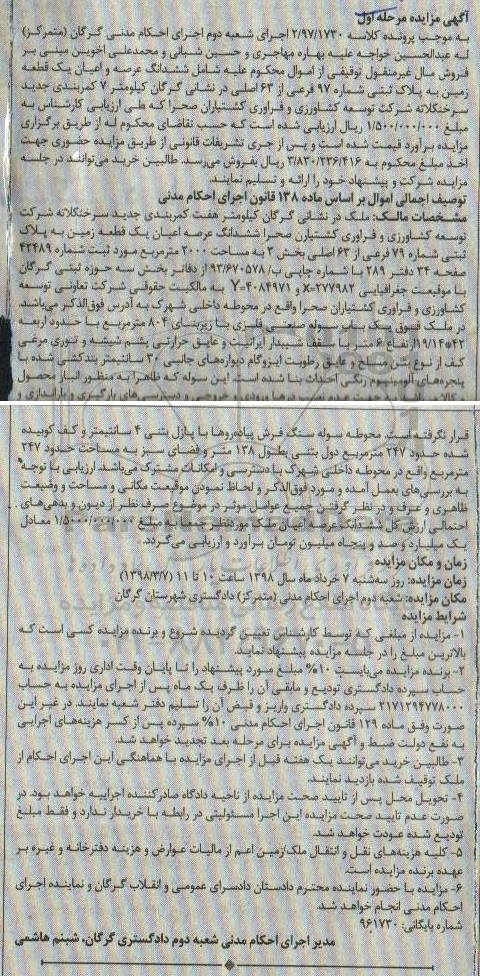 آگهی مزایده مرحله اول
به موجب پرونده کلاسه ۲/۹۷/۱۷۳۰ اجرای شعبه دوم اجرای احکام مدنی گرگان (متمرکز)
له عبدالحسین خواجه علیه بهاره مهاجری و حسین شبانی و محمدعلی اخوین مبنی بر
فروش مال غیرمنقول توقیفی از اموال محکوم علیه شامل ششدانگ عرصه و اعیان یک قطعه
زمین به پلاک ثبتی شماره ۹۷ فرعی از ۶۳ اصلی در نشانی گرگان کیلومتر ۷ کمربندی جدید
سرخنکلاته شرکت توسعه کشاورزی و فراوری کشتیاران صحرا که طی ارزیابی کارشناس به
مبلغ ۱/۵۰۰/۰۰۰/۰۰۰ ریال ارزیابی شده است که حسب تقاضای محکوم له از طریق برگزاری
مزایده برآورد قیمت شده است و پس از جری تشریفات قانونی از طریق مزایده حضوری جهت
اخذ مبلغ محکوم به ۳/۸۳۰/۲۳۶/۴۱۶ ریال بفروش می‌رسد. طالبین خرید می‌توانند در جلسه
مزایده شرکت و پیشنهاد خود را ارائه و تسلیم نمایند.
توصیف اجمالی اموال بر اساس ماده ۱۳۸ قانون اجرای احکام مدنی
مشخصات مالک: ملک در نشانی گرگان کیلومتر هفت کمربندی جدید سرخنکلاته شرکت
توسعه کشاورزی و فراوری کشتیاران صحرا ششدانگ عرصه اعیان یک قطعه زمین به پلاک
ثبتی شماره ۷۹ فرعی از ۶۳ اصلی بخش ۳ به مساحت ۲۰۰۰ مترمربع مورد ثبت شماره ۴۲۴۸۹
صفحه ۳۴ دفتر ۲۸۹ با شماره چاپی ب/۹۳/۶۷۰۵۷۸ از دفاتر بخش سه حوزه ثبتی گرگان
با موقعیت جغرافیایی x=۲۷۷۹۸۲ و Y=۴۰۸۴۹۷۱ به مالکیت حقوقی شرکت تعاونی توسعه
کشاورزی و فراوری کشتیاران صحرا واقع در محوطه داخلی شهرک به آدرس فوق‌الذکر می‌باشد.
در ملک فوق یک باب سوله صنعتی فلزی با زیربنای ۸۰۴ مترمربع با حدود اربعه
۱۹/۱۴*۴۲ ارتفاع ۶ متر با سقف شیبدار ایرانیت و عایق حرارتی پشم شیشه و توری مرغی
کف از نوع بتن مسلح و عایق رطوبت ایزوگام دیوارهای جانبی ۳۰ سانتیمتر بندکشی شده با
پنجره‌های آلومینیوم رنگی احداث بنا شده است. این سوله که ظاهرا به منظور انبار محصول
قرار نگرفته است. محوطه سوله سنگ فرش پیاده‌روها با پازل بتنی ۴ سانتیمتر و کف کوبیده
شده حدود ۲۴۷ مترمربع دول بتنی بطول ۱۳۸ متر و فضای سبز به مساحت حدود ۲۴۷
مترمربع واقع در محوطه داخلی شهرک با دسترسی و امکانات مشترک می‌باشد. ارزیابی با توجه
به بررسی‌های بعمل آمده و مورد فوق‌الذکر و لحاظ نمودن موقعیت مکانی و مساحت و وضعیت
ظاهری و عرف و در نظر گرفتن جمیع عوامل موثر در موضوع صرف نظر از دیون و بدهی‌های
احتمالی ارزش کل ششدانگ عرصه اعیان ملک موردنظر جمعا به مبلغ ۱/۵۰۰۰/۰۰۰/۰۰۰ معادل
یک میلیارد و صد و پنجاه میلیون تومان برآورد و ارزیابی می‌گردد.
زمان و مکان مزایده
زمان مزایده: روز سه‌شنبه ۷ خرداد ماه سال ۱۳۹۸ ساعت ۱۰ تا ۱۱ (۱۳۹۸/۳/۷)
مکان مزایده: شعبه دوم اجرای احکام مدنی (متمرکز) دادگستری شهرستان گرگان
شرایط مزایده
۱- مزایده از مبلغی که توسط کارشناس تعیین گردیده شروع و برنده مزایده کسی است که
بالاترین مبلغ را در جلسه مزایده پیشنهاد نمایند.
۲- برنده مزایده می‌بایست ۱۰% مبلغ مورد پیشنهاد را تا پایان وقت اداری روز مزایده به
حساب سپرده دادگستری تودیع و مابقی آن را ظرف یک ماه پس از اجرای مزایده به حساب
۲۱۷۱۲۹۴۷۷۸۰۰۰ سپرده دادگستری واریز و قبض آن را تسلیم دفتر شعبه نمایند. در غیر این
صورت وفق ماده ۱۲۹ قانون اجرای احکام مدنی ۱۰% سپرده پس از کسر هزینه‌های اجرایی
به نفع دولت ضبط و آگهی مزایده برای مرحله بعد تجدید خواهد شد.
۳- طالبین خرید می‌توانند یک هفته قبل از اجرای مزایده با هماهنگی این اجرای احکام از
ملک توقیف شده بازدید نمایند.
۴- تحویل محل پس از تایید صحت مزایده از ناحیه دادگاه صادرکننده اجراییه خواهد بود. در
صورت عدم تایید صحت مزایده این اجرا مسئولیتی در رابطه با خریدار ندارد و فقط مبلغ
تودیع شده عودت خواهد شد.
۵- کلیه هزینه‌های نقل و انتقال ملک/زمین اعم از مالیات عوارض و هزینه دفترخانه و غیره بر
عهده برنده مزایده است.
۶- مزایده با حضور نماینده محترم دادستان دادسرای عمومی و انقلاب گرگان و نماینده اجرای
احکام مدنی انجام خواهد شد.
شماره بایگانی: ۹۶۱۷۳۰
مدیر اجرای احکام مدنی شعبه دوم دادگستری گرگان، شبنم هاشمی